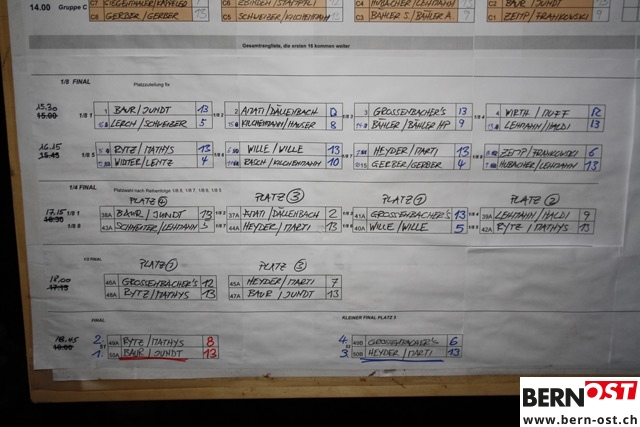 14.00 Gruppe C
C8 GERBER / GERBER 13
C5 13
C3 BÄHLER S / BÄHLER A 9
C1 ZEMP / FRANKOWSKI 9
Gesamtrangliste, die ersten 16 kommen weiter
1/8 FINAL Platzzuteilung fix
15.30 15.00 1/8 1
1 BAUR / JUNDT 13
LERCH / SCHWEIZER 5
1/8 2
AMATI / DÄLLENBACH 13
KILCHENMANN / HAUSER 8
1/8 3
GROSSENBACHER'S 13
BÄHLER / BÄHLER HP 9
1/8 4
WIRTH / 12
LEHMANN / HALDI 13
16.15 15.45 1/8 5
RYTZ / MATHYS 13
WINTER / LENTZ 4
WILLE / WILLE 13
RASCH / KILCHENMANN 10
1/8 7
HEYDER / MARTI 13
GERBER / GERBER 4
1/8 8
ZEMP / FRANKOWSKI 6
HUBACHER / LEHMANN 13
1/4 FINAL Platzwahl nach Reihenfolge 1/8 6, 1/8 7, 1/8 8, 1/8 5
PLATZ 4 PLATZ 3 PLATZ 1 PLATZ 2
17.15 16.30 1/8 1
38A BAUR / JUNDT 13
43A / LEHMANN 5
37A AMATI / DÄLLENBACH 2
44A HEYDER / MARTI 13
41A GROSSENBACHER'S 13
40A WILLE / WILLE 5
39A LEHMANN / HALDI 9
42A RYTZ / MATHYS 13
1/2 FINAL
PLATZ PLATZ 3
18.00 17.15
46A GROSSENBACHER'S 12
48A RYTZ / MATHYS 13
45A HEYDER / MARTI 7
47A BAUR / JUNDT 13
FINAL KLEINER FINAL PLATZ 3
18.45 18.00
2. 49A RYTZ / MATHYS 8
1. 50A BAUR / JUNDT 13
4. 49B GROSSENBACHER'S 6
3. 50B HEYDER / MARTI 13
BERNOST
www.bern-ost.ch